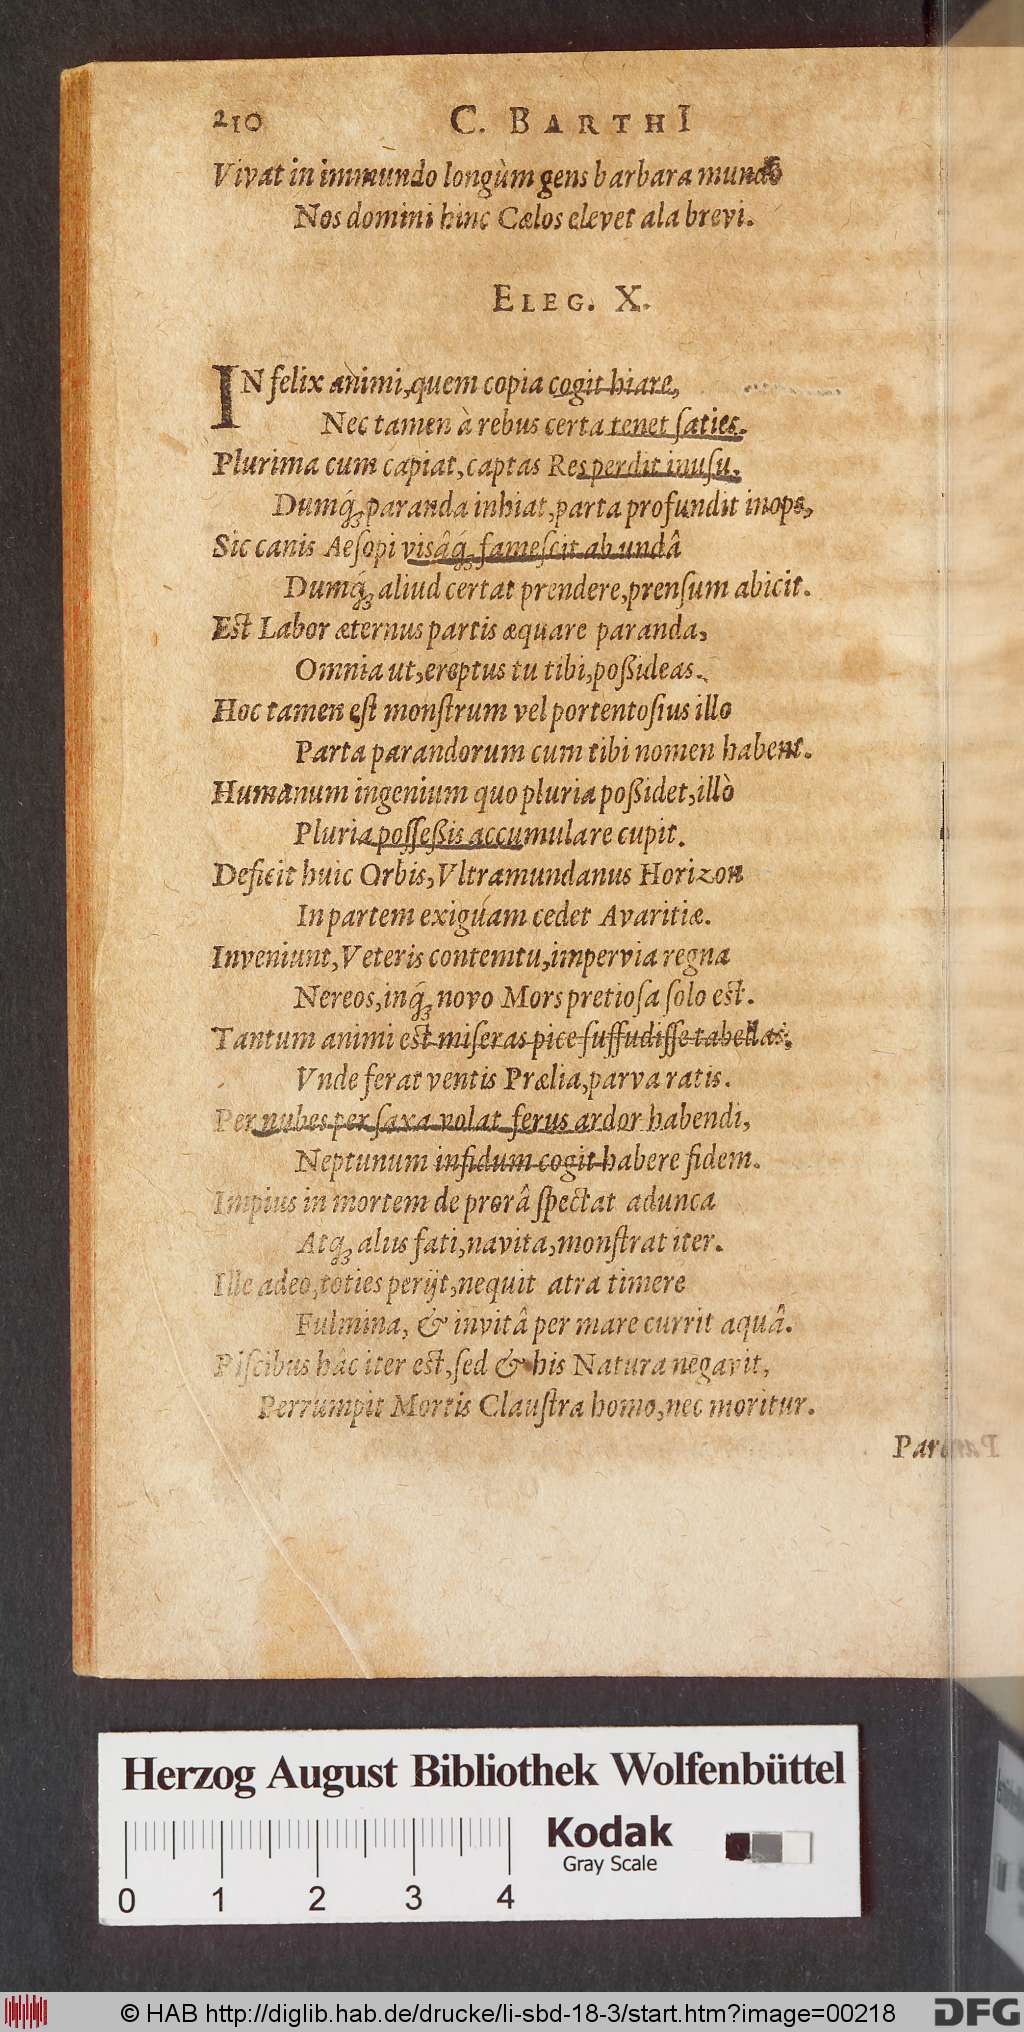 210 C. BARTHI
Vivat in immundo longùm gens barbara mundo
Nos domini hinc Cælos elevet ala brevi.
ELEG. X.
INfelix animi, quem copia cogit hiare,
Nec tamen à rebus certa tenet ſaties.
Plurima cum capiat, captas Res perdit inuſu,
Dumq́ꝫ paranda inhiat, parta profundit inops,
Sic canis Aeſopi visâq́ꝫ fameſcit ab undâ
Dumq́ꝫ aliud certat prendere, prenſum abicit.
Eſt Labor æternus partis æquare paranda,
Omnia ut, ereptus tu tibi, poßideas.
Hoc tamen eſt monſtrum vel portentoſius illo
Parta parandorum cum tibi nomen habent.
Humanum ingenium quo pluria poßidet, illò
Pluria poſſeßis accumulare cupit.
Deficit huic Orbis, Vltramundanus Horizon
In partem exiguam cedet Avaritiæ.
Inveniunt, Veteris contemtu, impervia regna
Nereos, inq́ꝫ novo Mors pretioſa ſolo eſt.
Tantum animi eſt miſeras pice ſuffudiſſe tabellas,
Vnde ferat ventis Prælia, parva ratis.
Per nubes per ſaxa volat ferus ardor habendi,
Neptunum infidum cogit habere fidem.
Impius in mortem de prorâ ſpectat adunca
Atqꝫ alius fati, navita, monſtrat iter.
Ille adeo, toties perijt, nequit atra timere
Fulmina, & invitâ per mare currit aquâ.
Piſcibus hâc iter eſt, ſed & his Natura negavit,
Perrumpit Mortis Clauſtra homo, nec moritur.
Herzog August Bibliothek Wolfenbüttel
Kodak
Gray Scale
0 1 2 3 4
© HAB http://diglib.hab.de/drucke/li-sbd-18-3/start.htm?image=00218
DFG